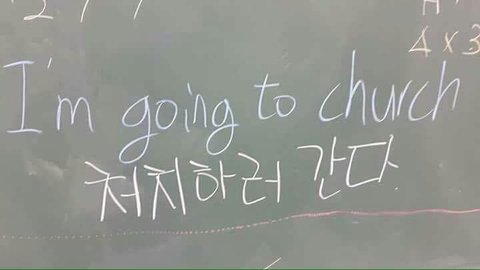 4 x 3
I'm going to church
처치하러 간다.